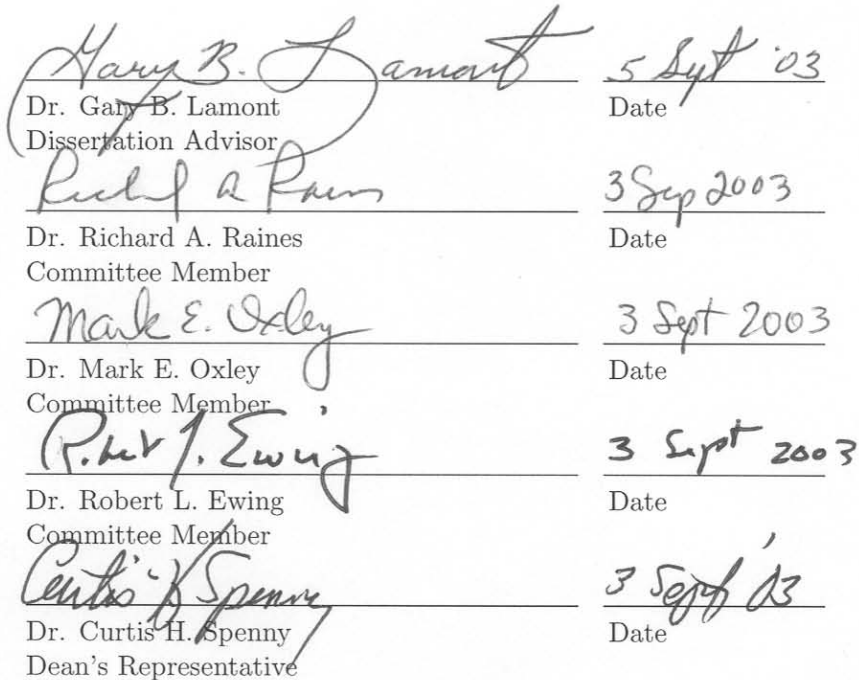 Gary B. Lamont 5 Sept '03
Dr. Gary B. Lamont Date
Dissertation Advisor
Richard A Raines 3 Sep 2003
Dr. Richard A. Raines Date
Committee Member
Mark E. Oxley 3 Sept 2003
Dr. Mark E. Oxley Date
Committee Member
Robert L. Ewing 3 Sept 2003
Dr. Robert L. Ewing Date
Committee Member
Curtis H Spenny 3 Sept '03
Dr. Curtis H. Spenny Date
Dean's Representative